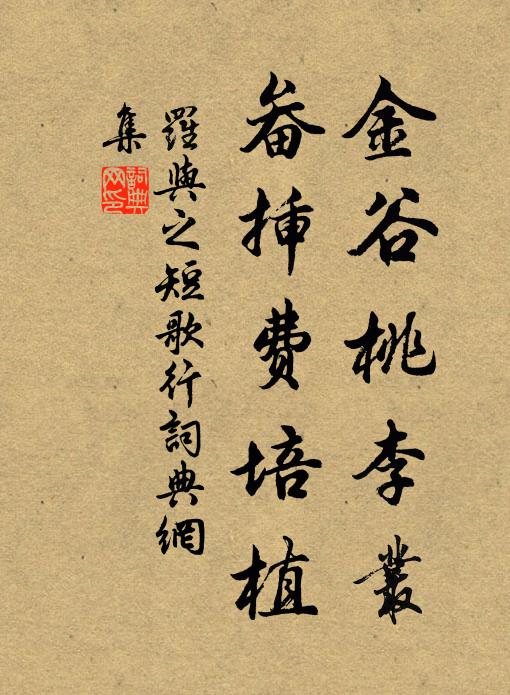 金谷桃李叢
畚挿費培植
羅與之短歌行詞典網
集
詞典網印